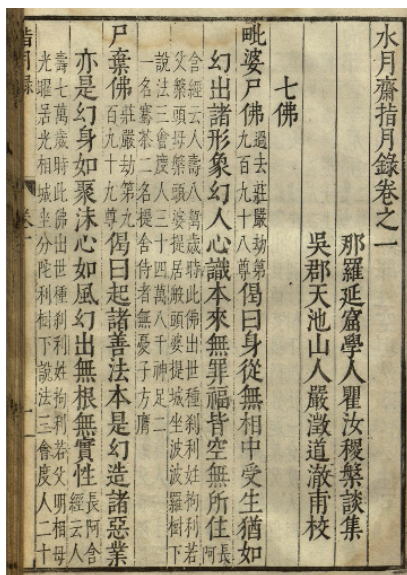 水月齋指月錄卷之一
那羅延窟學人瞿汝稷槃談集
吳郡天池山人嚴澂道澈甫校
七佛
毗婆尸佛過去莊嚴劫第九百九十八尊偈曰身從無相中受生猶如
幻出諸形象幻人心識本來無罪福皆空無所住長阿
含經云人壽八萬歲時此佛出世種剎利姓拘利若
父槃頭母槃頭婆提居般頭婆提城坐波波羅樹下
說法三會度人三十四萬八千神足二
一名騫茶二名提舍侍者無憂子方膺
尸棄佛莊嚴劫第九百九十九尊偈曰起諸善法本是幻造諸惡業
亦是幻身如聚沫心如風幻出無根無實性長阿含經云人
壽七萬歲時此佛出世種剎利姓拘利若父明相母
光曜居光相城坐分陀利樹下說法三會度人二十
指月錄